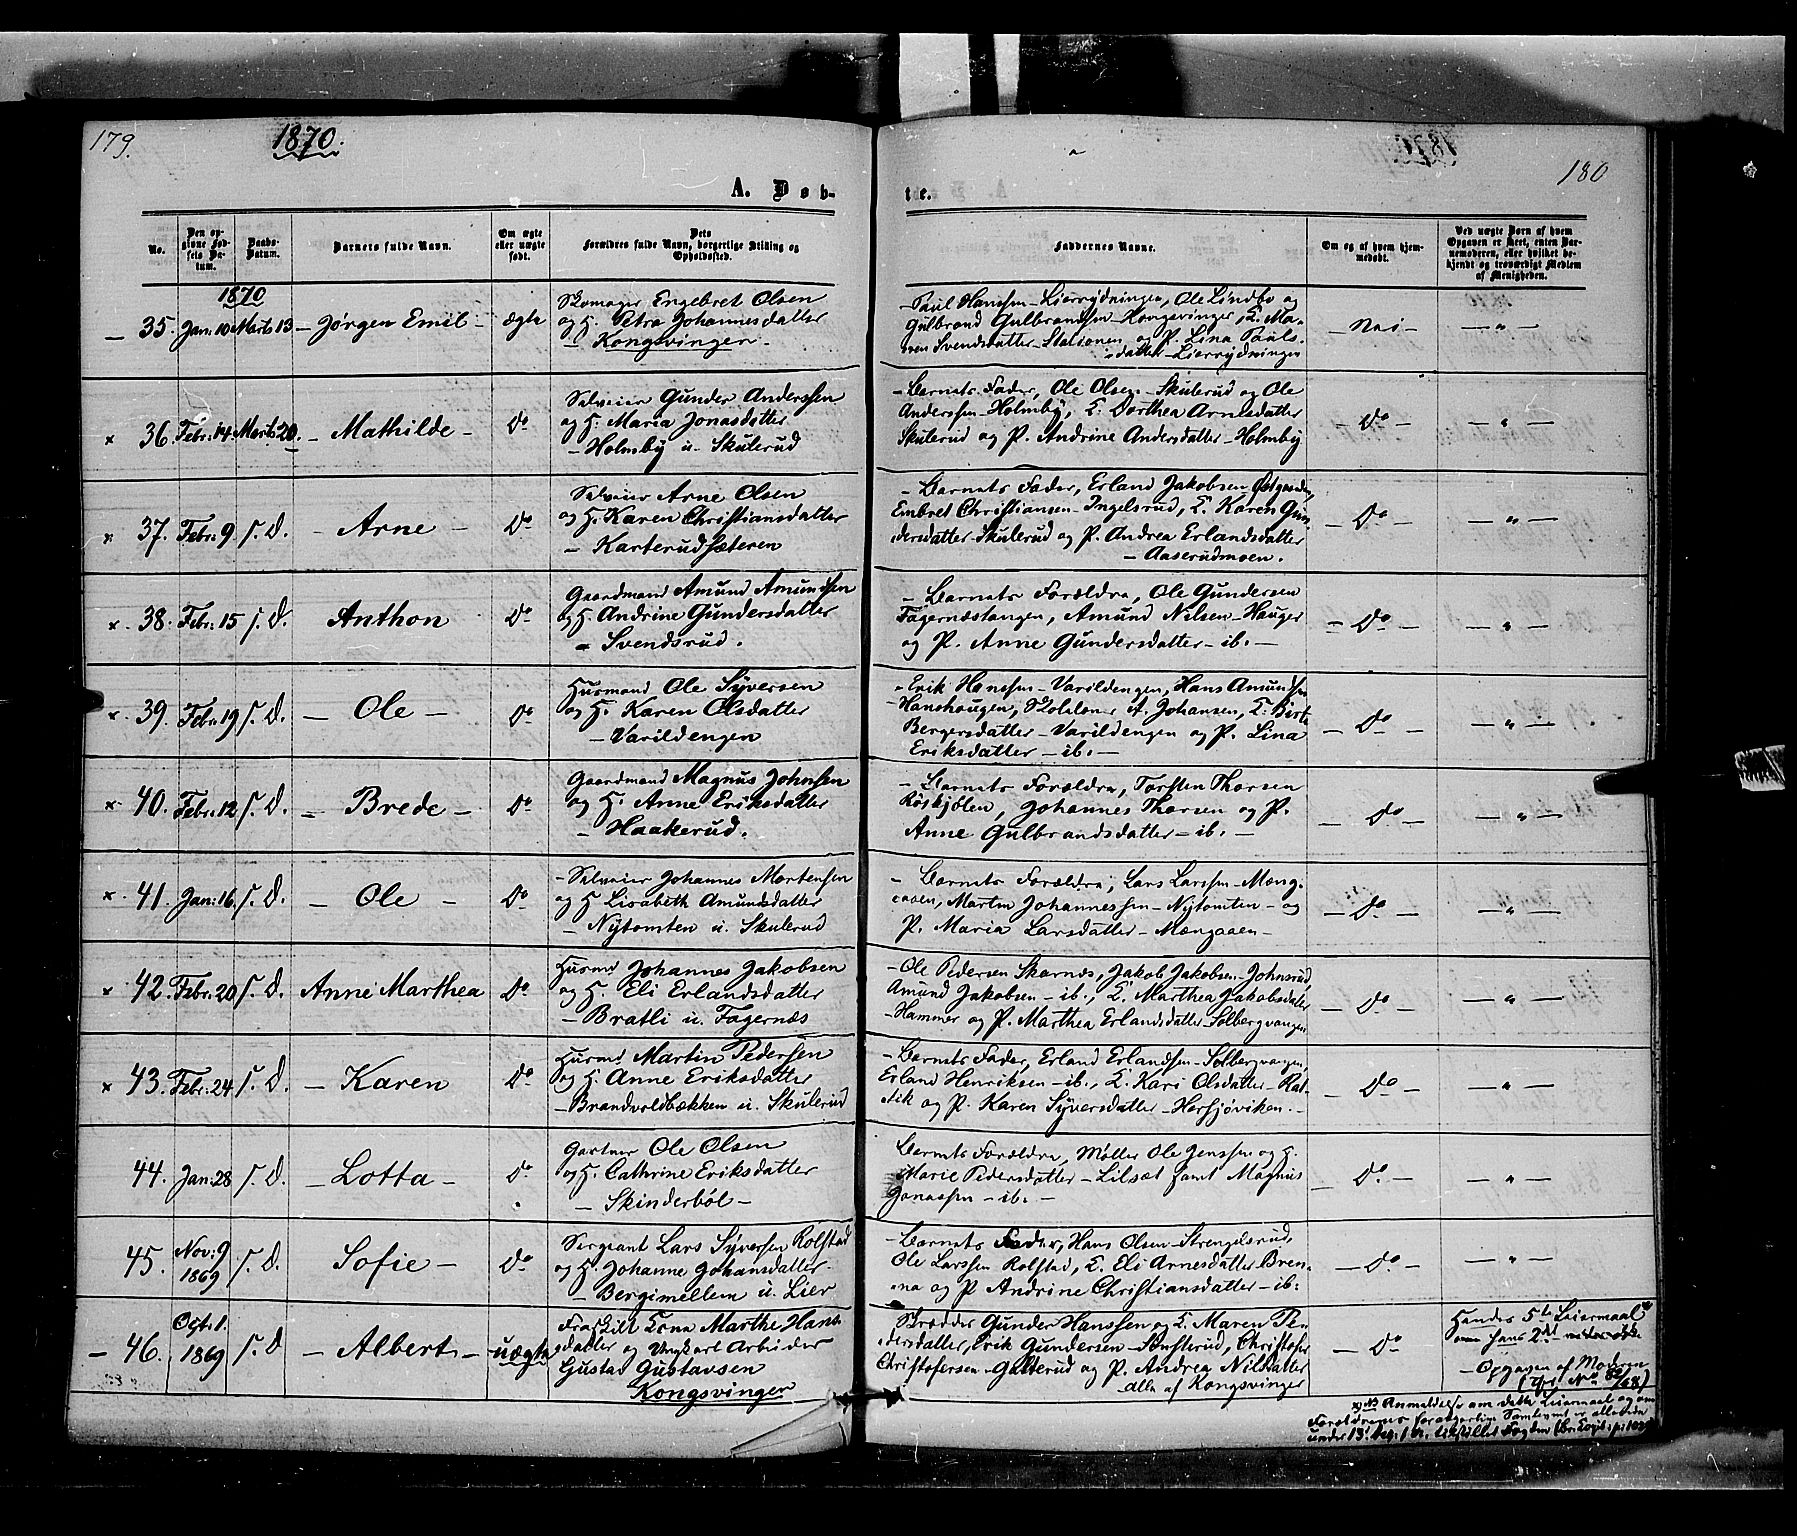 179.
1870.
1870.
180
A. Døb-
te.
No.
Den op-
givne Fød-
sels Da-
tum.
Daabs-
Datum.
Barnets fulde Navn.
Om ægte
eller uægte
født.
Dets
Forældres fulde Navn, borgerlige Stilling og
Opholdssted.
Faddernes Navne.
Om og af hvem hjem-
medøbt.
Ved uægte Børn af hvem
Opgaven er skeet, enten Bar-
nemoderen, eller hvilket be-
kjendt og troværdigt Medlem
af Menigheden.
1870
35. Jan: 10 Marts 13 – Jørgen Emil – ægte
Skomager Engebret Olsen
og H. Petra Johannesdatter
– Kongsvinger –
– Paul Hanssen – Lierrydningen, Ole Lindbo og
Gulbrand Gulbrandsen – Kongsvinger, E. Ma-
ren Svendsdatter – Stationen og P. Lina Pauls-
datter – Lierrydningen
– Nei – – " –
x 36. Febr: 14 Marts 20. – Mathilde – Do
Selveier Gunder Anderssen
og H. Maria Jonasdatter
– Holmby u. Skulerud
– Barnets Fader, Ole Olsen – Skulerud og Ole
Anderssen – Holmby, E. Dorthea Arnesdatter
Skulerud og P. Andrine Andersdatter – Holmby
– Do – – " –
x 37. Febr: 9 s. D. – Arne – Do
Selveier Arne Olsen
og H. Karen Christiansdatter
– Karterudsæteren
– Barnets Fader, Erland Jakobsen Østgaarden,
Embret Christiansen – Ingelsrud, E. Karen Gun-
dersdatter – Skulerud og P. Andrea Erlandsdatter
– Aaserudmoen.
– Do – – " –
x 38. Febr: 15 s. D. Anthon Do
Gaardmand Amund Amundsen
og H. Andrine Gundersdatter
– Svendsrud.
– Barnets Forældre, Ole Gundersen
Fagernæstangen, Amund Nilsen – Hauger
og P. Anne Gundersdatter – ib. –
– Do – – " –
x 39. Febr: 19 s. D. – Ole – Do
Husmand Ole Syversen
og H. Karen Olsdatter
– Varildengen
– Erik Hanssen – Varildengen, Hans Amundsen
– Hanshaugen, A. Johansen, E. Birte
Bergersdatter – Varildengen og P. Lina
Eriksdatter – ib. –
– Do – – " –
x 40. Febr: 12 s. D. – Brede – Do
Gaardmand Magnus Johnsen
og H. Anne Eriksdatter
– Haakerud.
– Barnets Forældre, Torsten Thorsen
Røskjølen, Johannes Thorsen og P.
Anne Gulbrandsdatter – ib. –
– Do – – " –
x 41. Jan: 16. s. D. – Ole – Do
– Selveier Johannes Mortensen
og H Lisabeth Amundsdatter
– Nytomten u. Skulerud
– Barnets Forældre, Lars Larssen – Mæng-
aaen, Martin Johannessen – Nytomten – og
P. Maria Larsdatter – Mængaaen –
– Do – – " –
x 42. Febr: 20 s. D. Anne Marthea Do
Husmd Johannes Jakobsen
og H. Eli Erlandsdatter
– Bratli u. Fagernæs
– Ole Pedersen Skarnæs, Jakob Jakobsen – Johnsrud,
Amund Jakobsen – ib., E. Marthea Jakobsdatter
– Hammer og P. Marthea Erlandsdatter – Solbergvangen
– Do – – " –
x 43. Febr: 24 s. D. – Karen Do
Husmd Martin Pedersen
og H. Anne Eriksdatter
– Brandvoldbækken u. Skulerud
– Barnets Fader, Erland Erlandsen – Solbergvangen,
Erland Henriksen – ib., E. Kari Olsdatter – Rat-
vik og P. Karen Syversdatter – Hersjøviken. –
– Do – – " –
44. Jan: 28 s. D. – Lotta – Do
Gartner Ole Olsen
og H. Cathrine Eriksdatter
– Skinderböl –
Barnets Forældre, Møller Ole Jenssen og H.
Marie Pedersdatter – Lilsæt samt Magnus
Jonassen – ib. –
– Do – – " –
45. Nov: 9
1869 s. D. Sofie – Do
Sergeant Lars Syversen Rolstad
og H. Johanne Johansdatter
– Bergimellem u. Lier
– Barnets Fader, Hans Olsen – Strengelsrud,
Ole Larssen Rolstad, E. Eli Arnesdatter Bren-
na og P. Andrine Christiansdatter – ib:
– Do – – " –
– 46. Oct: 1.
1869 s. D – Albert – uægte
Fraskilt Kone Marthe Hans-
datter og Ungkarl Arbeider
Gustav Gustavsen
Kongsvinger
Brødder Gunder Hanssen og E. Maren Pe-
dersdatter, Erik Gundersen – Christofer
Christofersen – Galterud og P. Andrea Nilsdatter
alle af Kongsvinger
– Do –
Hendes 5te Leiermaal
hans 2det
– Opgaven af Moderen